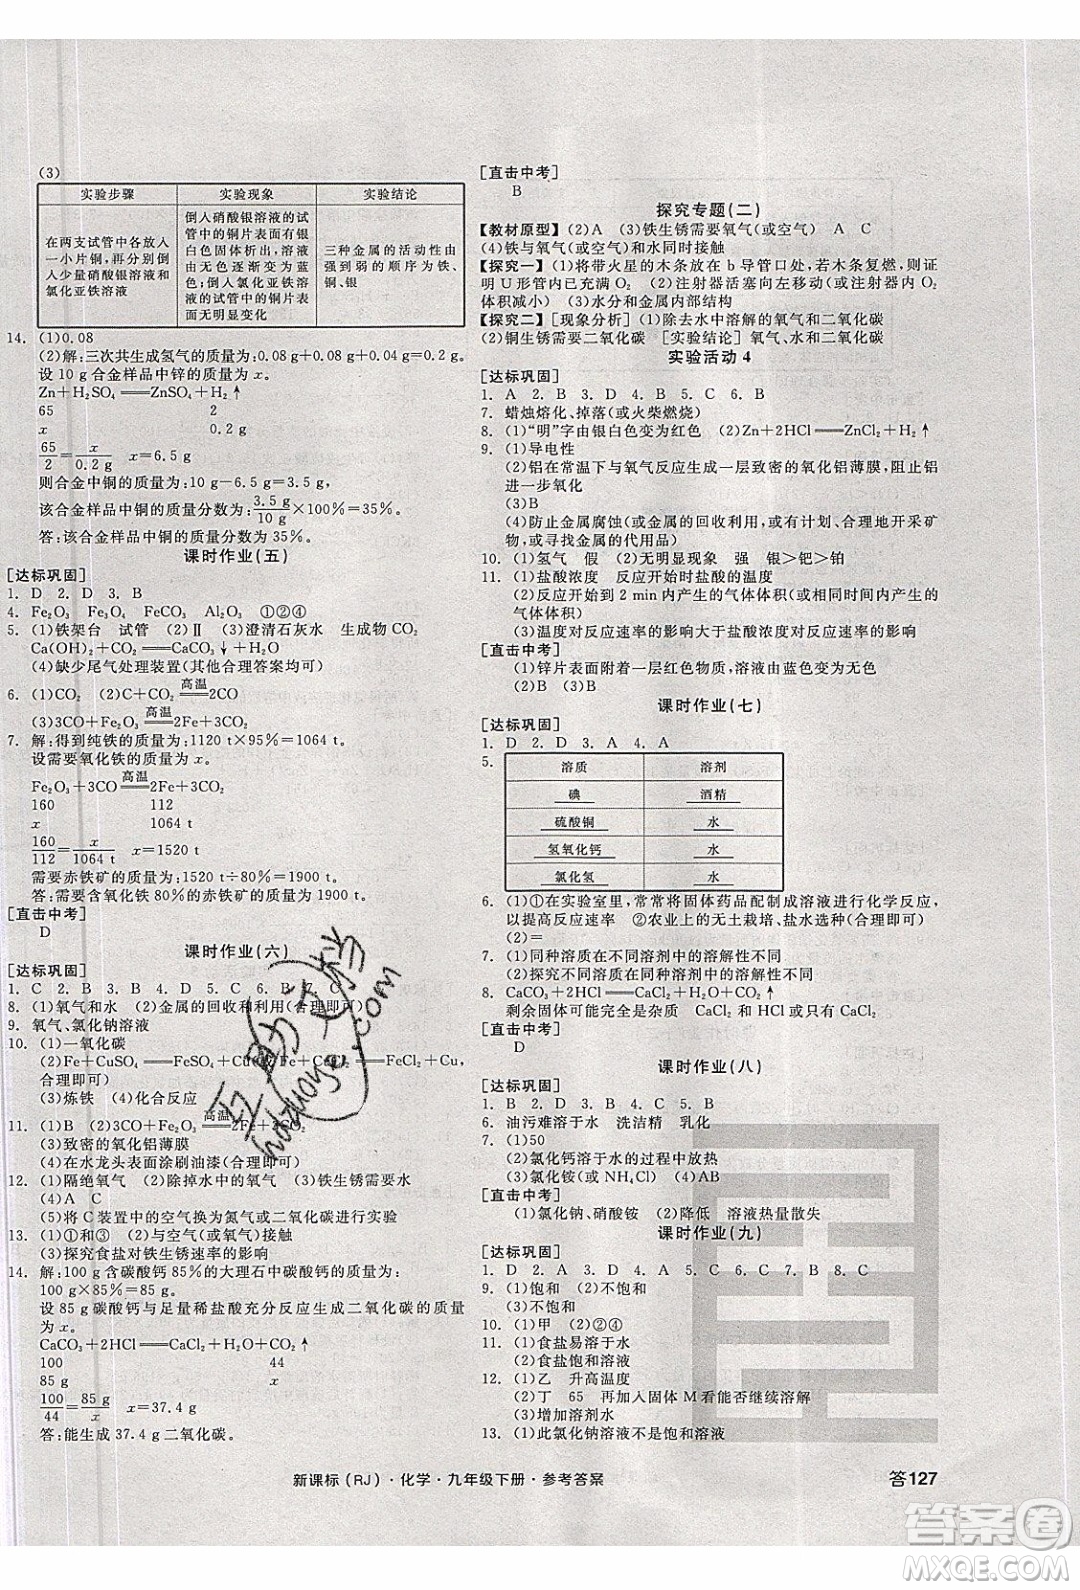 (3)
实验步骤 实验现象 实验结论
在两支试管中各放入一小片铜,再分别倒入少量硝酸银溶液和氯化亚铁溶液
倒入硝酸银溶液的试管中的铜片表面有银白色固体析出,溶液由无色逐渐变为蓝色;倒入氯化亚铁溶液的试管中的铜片表面无明显变化
三种金属的活动性由强到弱的顺序为铁、铜、银
14. (1)0.08
(2)解:三次共生成氢气的质量为:0.08 g+0.08 g+0.04 g=0.2 g。
设 10 g 合金样品中锌的质量为 x。
Zn+H₂SO₄══ZnSO₄+H₂↑
65 2
x 0.2 g
65/2=x/0.2 g x=6.5 g
则合金中铜的质量为:10 g-6.5 g=3.5 g,
该合金样品中铜的质量分数为:3.5 g/10 g×100%=35%。
答:该合金样品中铜的质量分数为 35%。
课时作业(五)
[达标巩固]
1. D 2. D 3. B
4. Fe₂O₃ Fe₃O₄ FeCO₃ Al₂O₃ ①②④
5. (1)铁架台 试管 (2)Ⅱ (3)澄清石灰水 生成物 CO₂
Ca(OH)₂+CO₂══CaCO₃↓+H₂O
(4)缺少尾气处理装置(其他合理答案均可)
6. (1)CO₂ (2)C+CO₂══高温══2CO
(3)3CO+Fe₂O₃══高温══2Fe+3CO₂
7. 解:得到纯铁的质量为:1120 t×95%=1064 t。
设需要氧化铁的质量为 x。
Fe₂O₃+3CO══高温══2Fe+3CO₂
160 112
x 1064 t
160/112=x/1064 t x=1520 t
需要赤铁矿的质量为:1520 t÷80%=1900 t。
答:需要含氧化铁 80%的赤铁矿的质量为 1900 t。
[直击中考]
D
课时作业(六)
[达标巩固]
1. C 2. B 3. B 4. D 5. C 6. B 7. C
8. (1)氧气和水 (2)金属的回收和利用(合理即可)
9. 氧气、氯化钠溶液
10. (1)一氧化碳
(2)Fe+CuSO₄══FeSO₄+Cu(或 Fe+CuCl₂══FeCl₂+Cu,
合理即可)
(3)炼铁 (4)化合反应
11. (1)B (2)3CO+Fe₂O₃══高温══2Fe+3CO₂
(3)致密的氧化铝薄膜
(4)在水龙头表面涂刷油漆(合理即可)
12. (1)隔绝氧气 (2)除掉水中的氧气 (3)铁生锈需要水
(4)A C
(5)将 C 装置中的空气换为氮气或二氧化碳进行实验
13. (1)①和③ (2)与空气(或氧气)接触
(3)探究食盐对铁生锈速率的影响
14. 解:100 g 含碳酸钙 85%的大理石中碳酸钙的质量为:
100 g×85%=85 g。
设 85 g 碳酸钙与足量稀盐酸充分反应生成二氧化碳的质量
为 x。
CaCO₃+2HCl══CaCl₂+H₂O+CO₂↑
100 44
85 g x
100/44=85 g/x x=37.4 g
答:能生成 37.4 g 二氧化碳。
[直击中考]
B
探究专题(二)
【教材原型】(2)A (3)铁生锈需要氧气(或空气) A C
(4)铁与氧气(或空气)和水同时接触
【探究一】(1)将带火星的木条放在 b 导管口处,若木条复燃,则证
明 U 形管内已充满 O₂ (2)注射器活塞向左移动(或注射器内 O₂
体积减小) (3)水分和金属内部结构
【探究二】[现象分析](1)除去水中溶解的氧气和二氧化碳
(2)铜生锈需要二氧化碳 [实验结论] 氧气、水和二氧化碳
实验活动 4
[达标巩固]
1. A 2. B 3. D 4. C 5. C 6. B
7. 蜡烛熔化、掉落(或火柴燃烧)
8. (1)“明”字由银白色变为红色 (2)Zn+2HCl══ZnCl₂+H₂↑
9. (1)导电性
(2)铝在常温下与氧气反应生成一层致密的氧化铝薄膜,阻止铝
进一步氧化
(3)B
(4)防止金属腐蚀(或金属的回收利用,或有计划、合理地开采矿
物,或寻找金属的代用品)
10. (1)氢气 假 (2)无明显现象 强 银>钯>铂
11. (1)盐酸浓度 反应开始时盐酸的温度
(2)反应开始到 2 min 内产生的气体体积(或单位时间内产生的
气体体积)
(3)温度对反应速率的影响大于盐酸浓度对反应速率的影响
[直击中考]
(1)锌片表面附着一层红色物质,溶液由蓝色变为无色
(2)B (3)B
课时作业(七)
[达标巩固]
1. D 2. D 3. A 4. A
5.
溶质 溶剂
碘 酒精
硫酸铜 水
氢氧化钙 水
氯化氢 水
6. (1)①在实验室里,常常将固体药品配制成溶液进行化学反应,
以提高反应速率 ②农业上的无土栽培、盐水选种(合理即可)
(2)=
7. (1)同种溶质在不同溶剂中的溶解性不同
(2)探究不同溶质在同种溶剂中的溶解性不同
8. CaCO₃+2HCl══CaCl₂+H₂O+CO₂↑
剩余固体可能完全是杂质 CaCl₂ 和 HCl 或只有 CaCl₂
[直击中考]
D
课时作业(八)
[达标巩固]
1. B 2. B 3. D 4. A 5. A
6. 油污难溶于水 洗洁精 乳化
7. (1)50
(2)氯化钙溶于水的过程中放热
(3)氯化铵(或 NH₄Cl) (4)AB
[直击中考]
(1)氯化钠、硝酸铵 (2)降低 溶液热量散失
课时作业(九)
[达标巩固]
1. D 2. A 3. D 4. D 5. C 6. D 7. C 8. C
9. (1)饱和 (2)不饱和
(3)不饱和
10. (1)甲 (2)②④
11. (1)食盐易溶于水
(2)食盐饱和溶液
12. (1)乙 升高温度
(2)丁 65 再加入固体 M 看能否继续溶解
(3)增加溶剂水
13. (1)此氯化钠溶液不是饱和溶液
新课标(RJ)·化学·九年级下册·参考答案
答127
互助文档
hdzuoye.com
答案圈
MXQE.COM